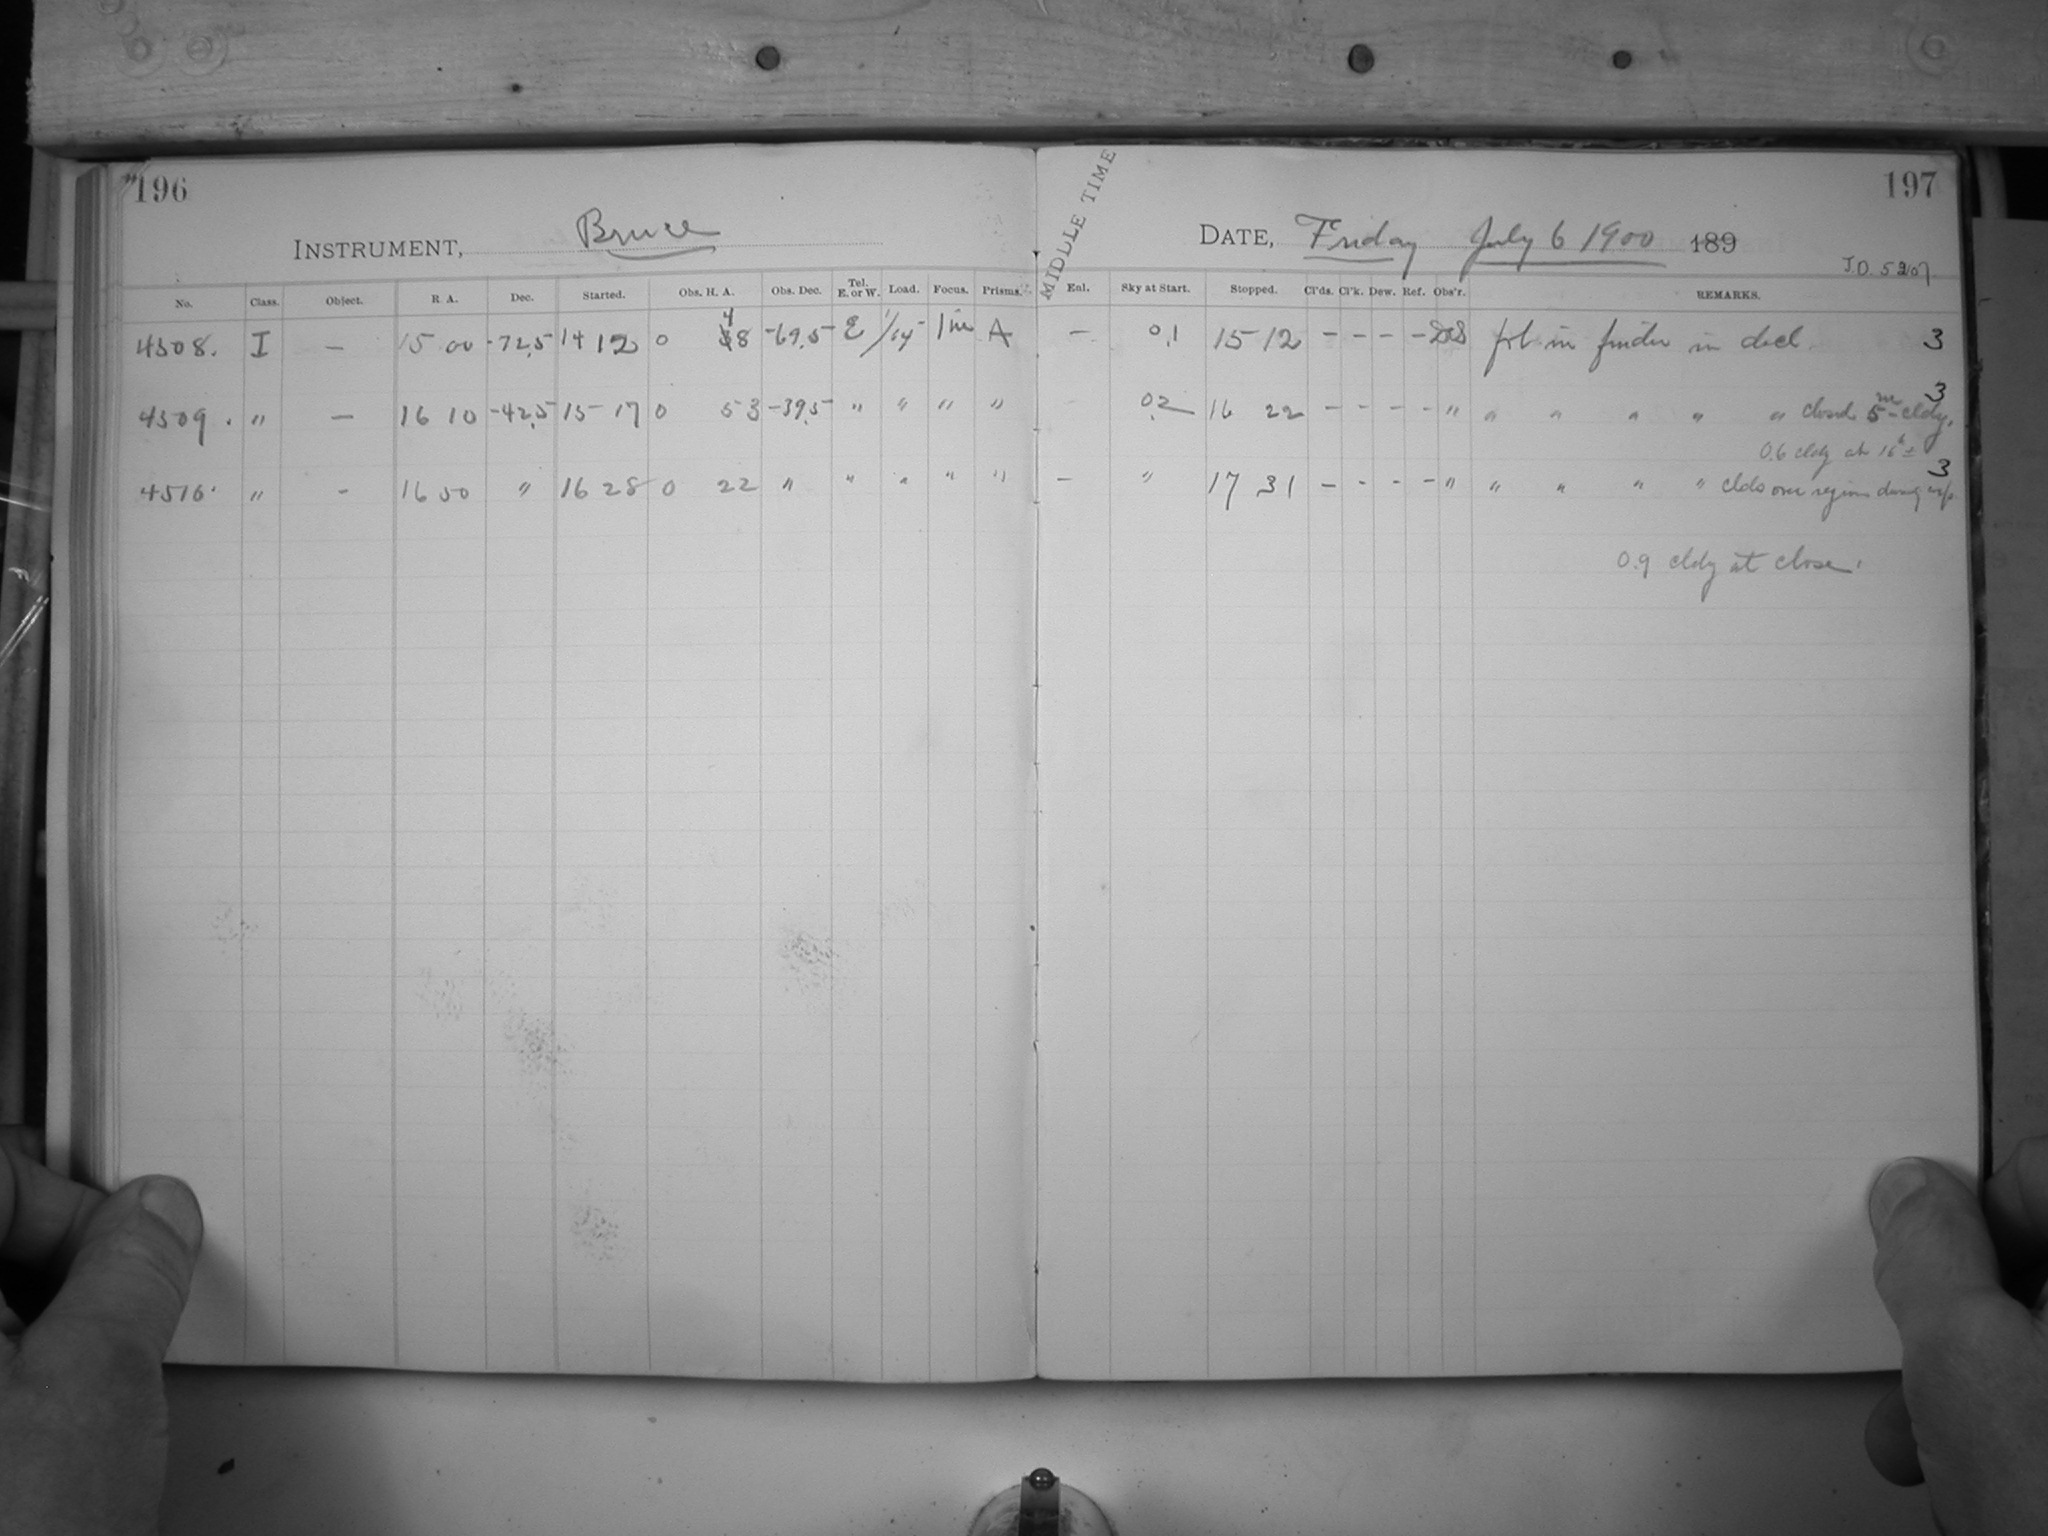 196
INSTRUMENT, Bruce
No. Class. Object. R. A. Dec. Started. Obs. H. A. Obs. Dec. Tel. E. or W. Load. Focus. Prisms.
4508. I — 15 00 -72.5 14 12 0 48 -69.5 E 1 in A
4509. " — 16 10 -42.5 15 17 0 53 -39.5 " " " "
4510. " - 16 50 " 16 28 0 22 " " " " "
MIDDLE TIME
197
DATE, Friday July 6 1900 189
J.D. 5207
Enl. Sky at Start. Stopped. Cl'ds. Cl'k. Dew. Ref. Obs'r. REMARKS.
— 0.1 15 12 - - - - in finder in decl. 3
0.2 16 22 - - - - " " " " " " closed 5m cldy. 3
0.6 cldy at 16h ±
— " 17 31 - - - - " " " " " clds over region during exp. 3
0.9 cldy at close.